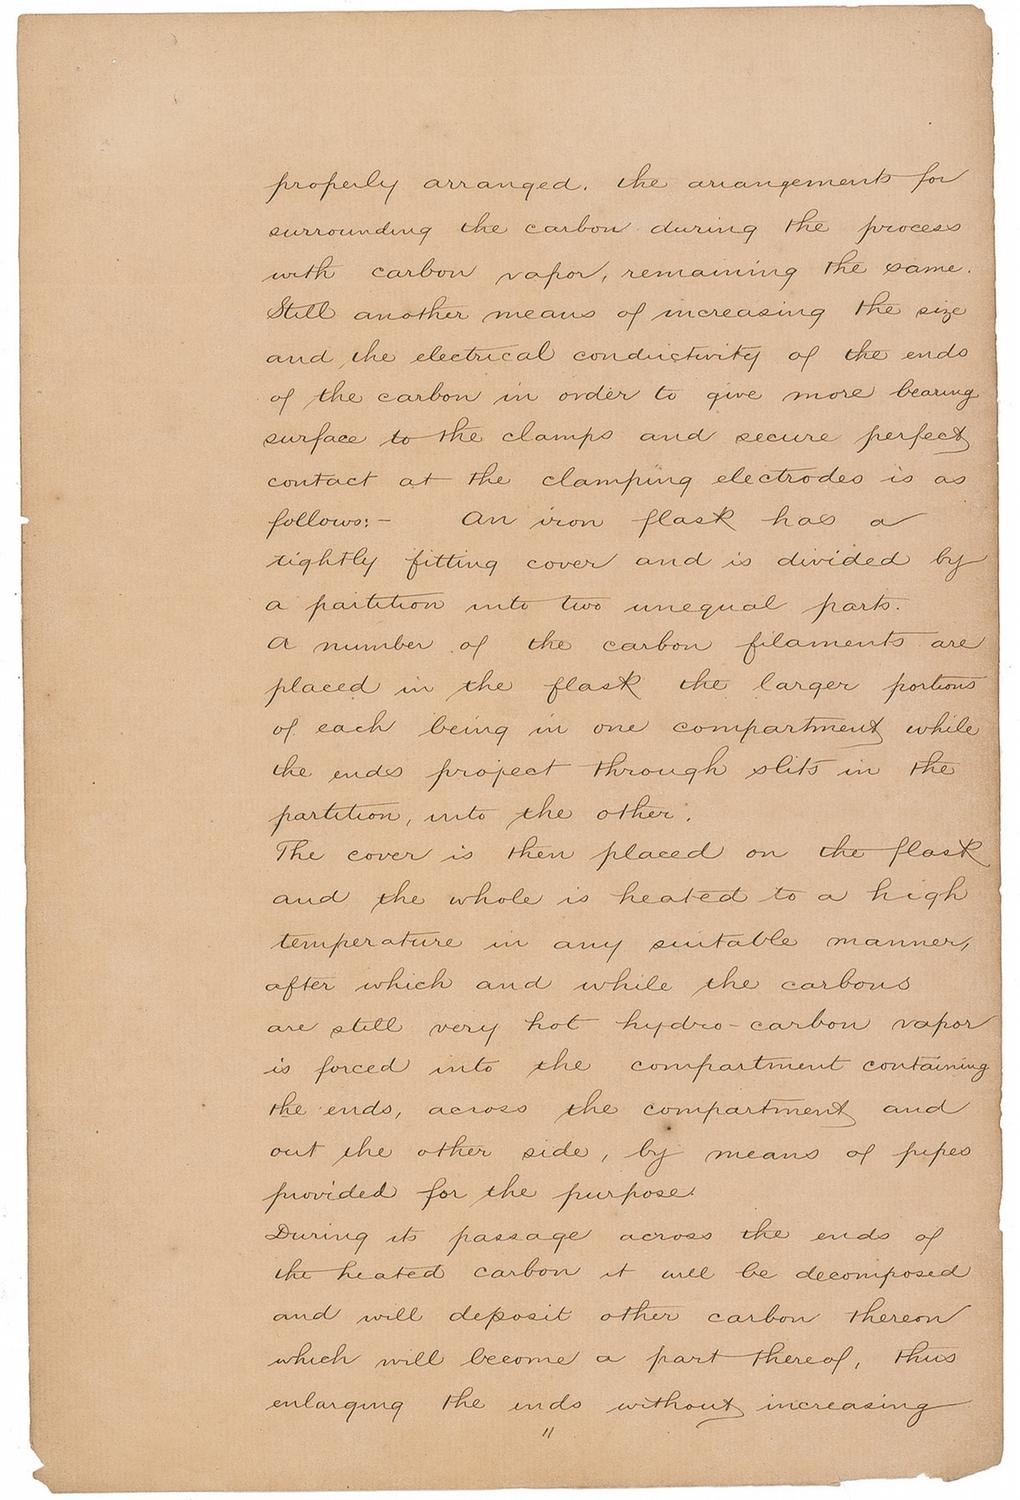 properly arranged. the arrangements for
surrounding the carbon during the process
with carbon vapor, remaining the same.
Still another means of increasing the size
and the electrical conductivity of the ends
of the carbon in order to give more bearing
surface to the clamps and secure perfect
contact at the clamping electrodes is as
follows:- An iron flask has a
tightly fitting cover and is divided by
a partition into two unequal parts.
A number of the carbon filaments are
placed in the flask the larger portions
of each being in one compartment while
the ends project through slits in the
partition, into the other.
The cover is then placed on the flask
and the whole is heated to a high
temperature in any suitable manner,
after which and while the carbons
are still very hot hydro-carbon vapor
is forced into the compartment containing
the ends, across the compartment and
out the other side, by means of pipes
provided for the purpose.
During its passage across the ends of
the heated carbon it will be decomposed
and will deposit other carbon thereon
which will become a part thereof, thus
enlarging the ends without increasing
11